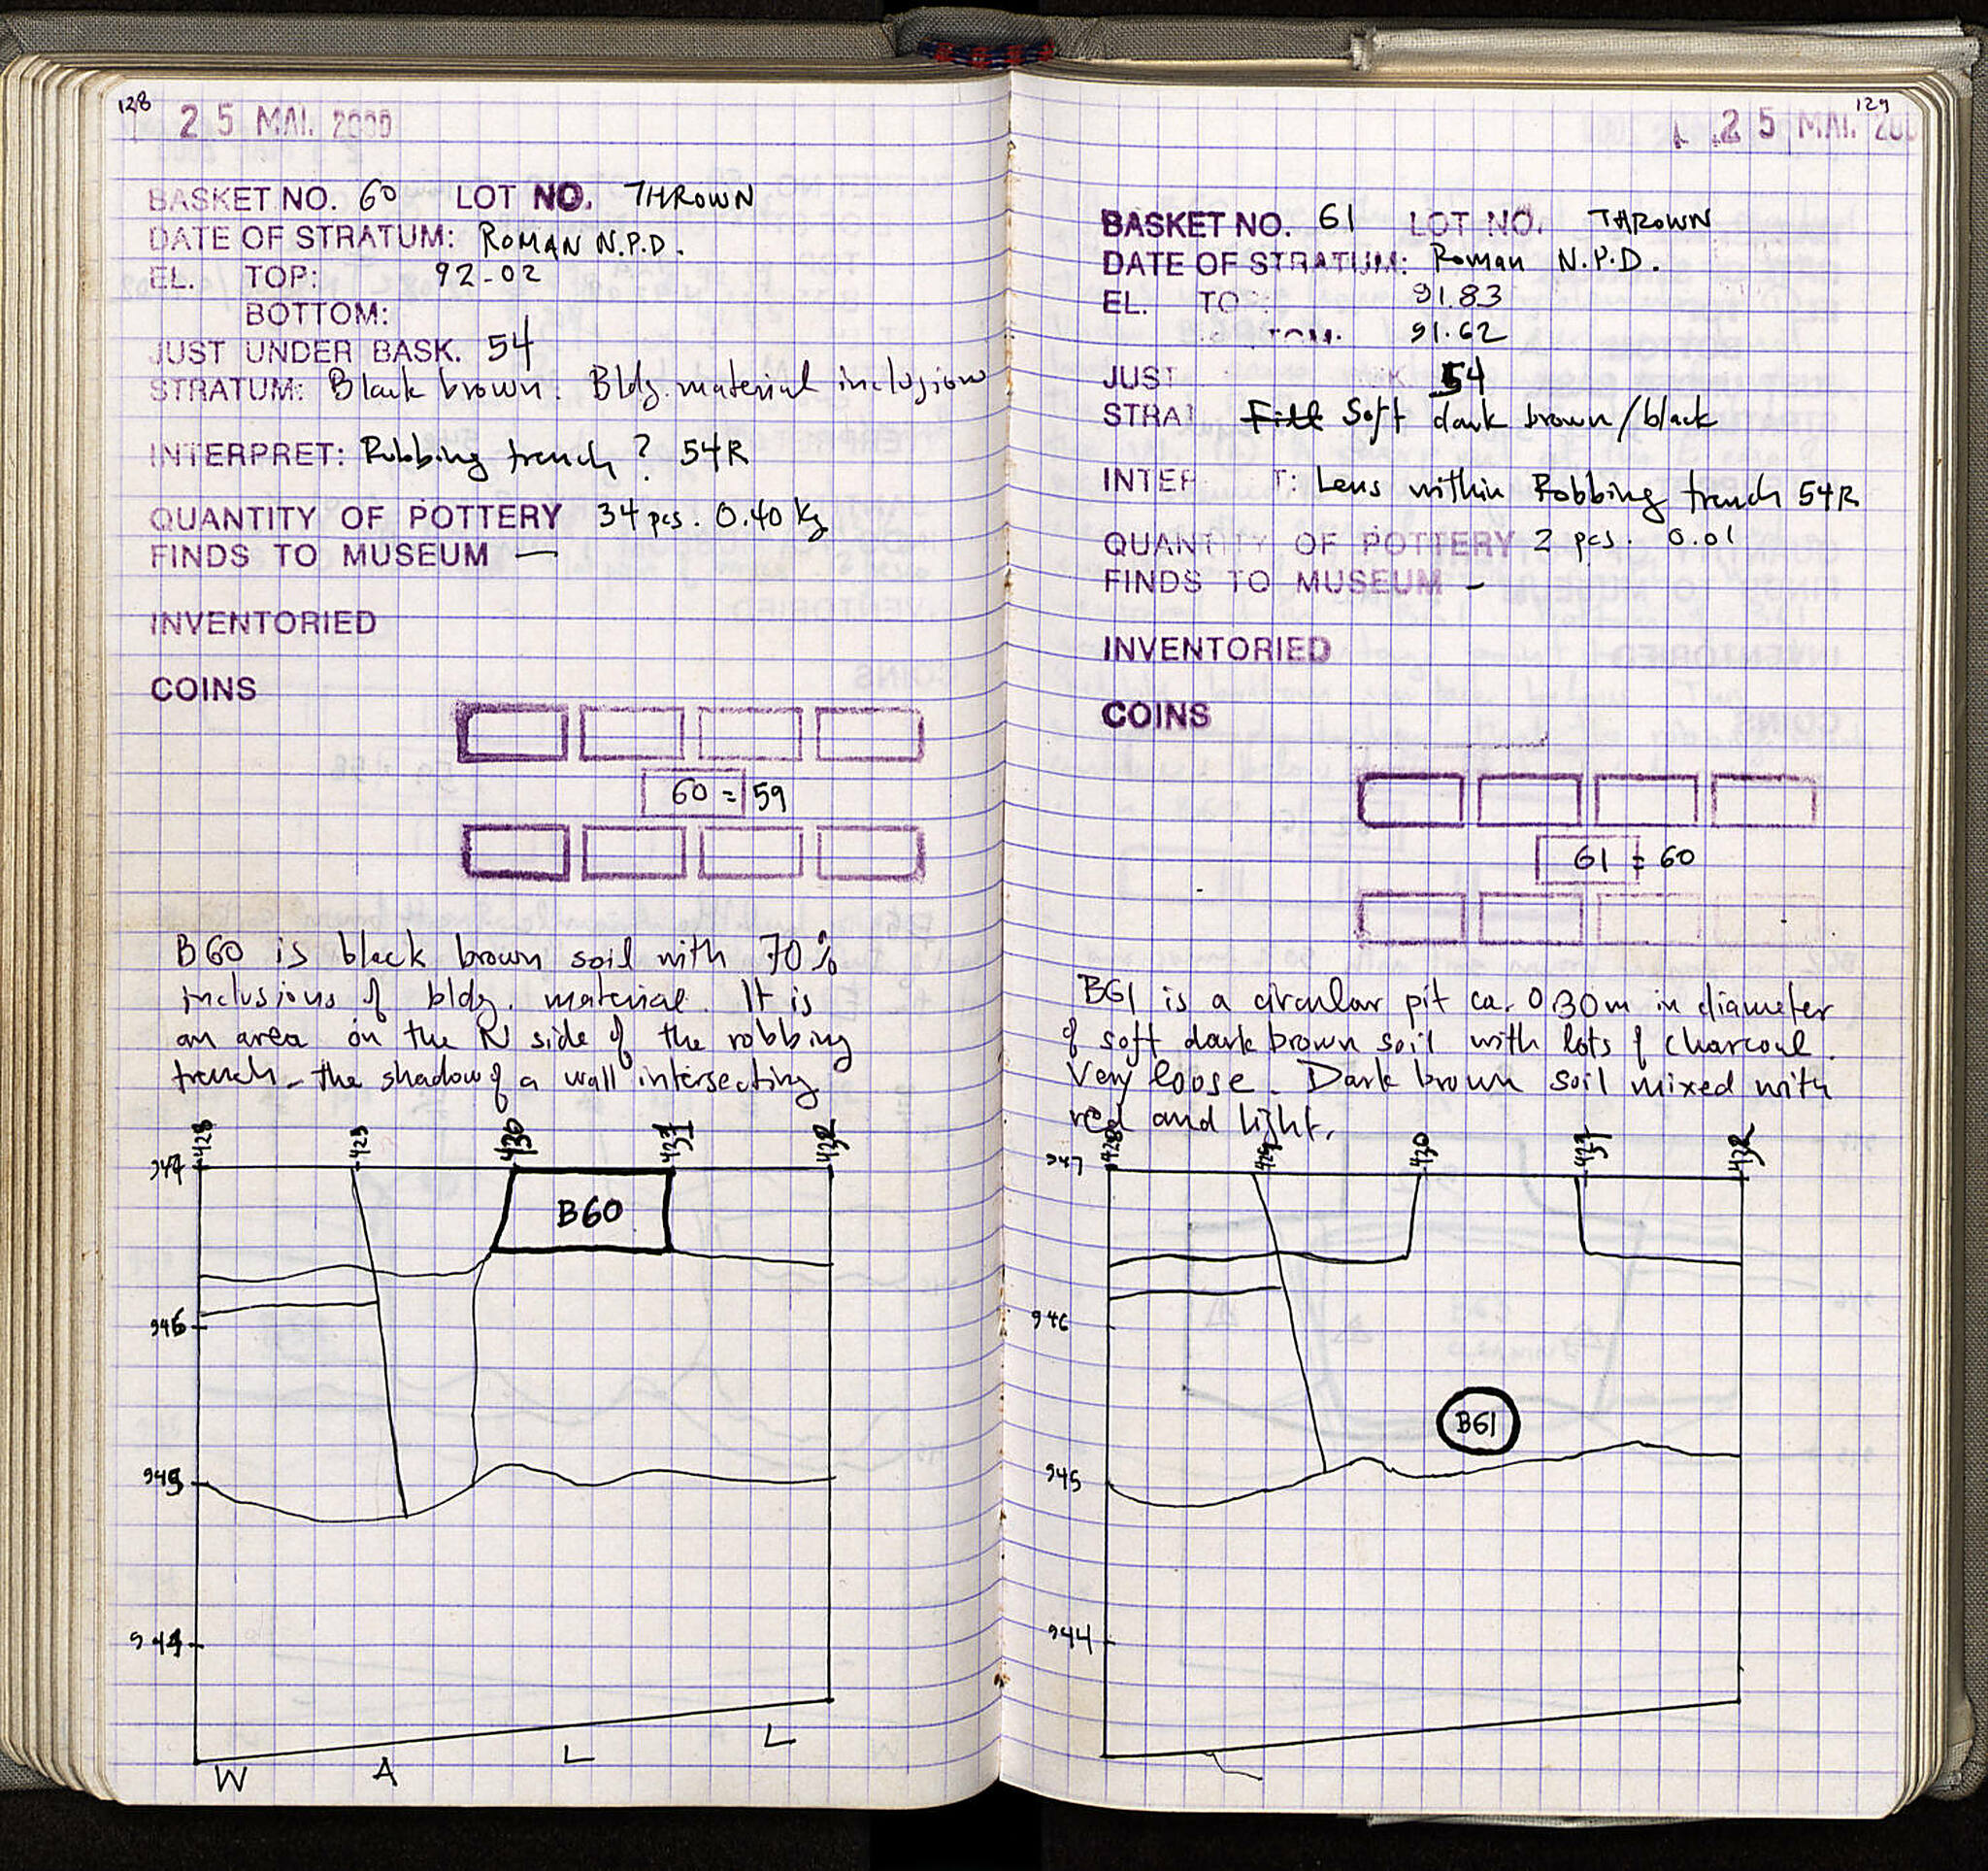 128
25 MAI. 2000
BASKET NO. 60 LOT NO. THROWN
DATE OF STRATUM: ROMAN N.P.D.
EL. TOP: 92-02
BOTTOM:
JUST UNDER BASK. 54
STRATUM: Black brown. Bldg. material inclusions
INTERPRET: Robbing trench? 54R
QUANTITY OF POTTERY 34 pcs. 0.40 kg
FINDS TO MUSEUM —
INVENTORIED
COINS
60 = 59
B60 is black brown soil with 70%
inclusions of bldg. material. It is
an area on the N side of the robbing
trench - the shadow of a wall intersecting
428 429 430 431 432
947
B60
946
945
944
W A L L
129
25 MAI. 200
BASKET NO. 61 LOT NO. THROWN
DATE OF STRATUM: Roman N.P.D.
EL. TO : 91.83
TOM. 91.62
JUST K. 54
STRAT Fill Soft dark brown/black
INTER T: Lens within Robbing trench 54R
QUANTITY OF POTTERY 2 pcs. 0.01
FINDS TO MUSEUM -
INVENTORIED
COINS
61 = 60
B61 is a circular pit ca. 0.30m in diameter
of soft dark brown soil with lots of charcoal.
Very loose. Dark brown soil mixed with
red and light.
428 429 430 431 432
947
946
B61
945
944